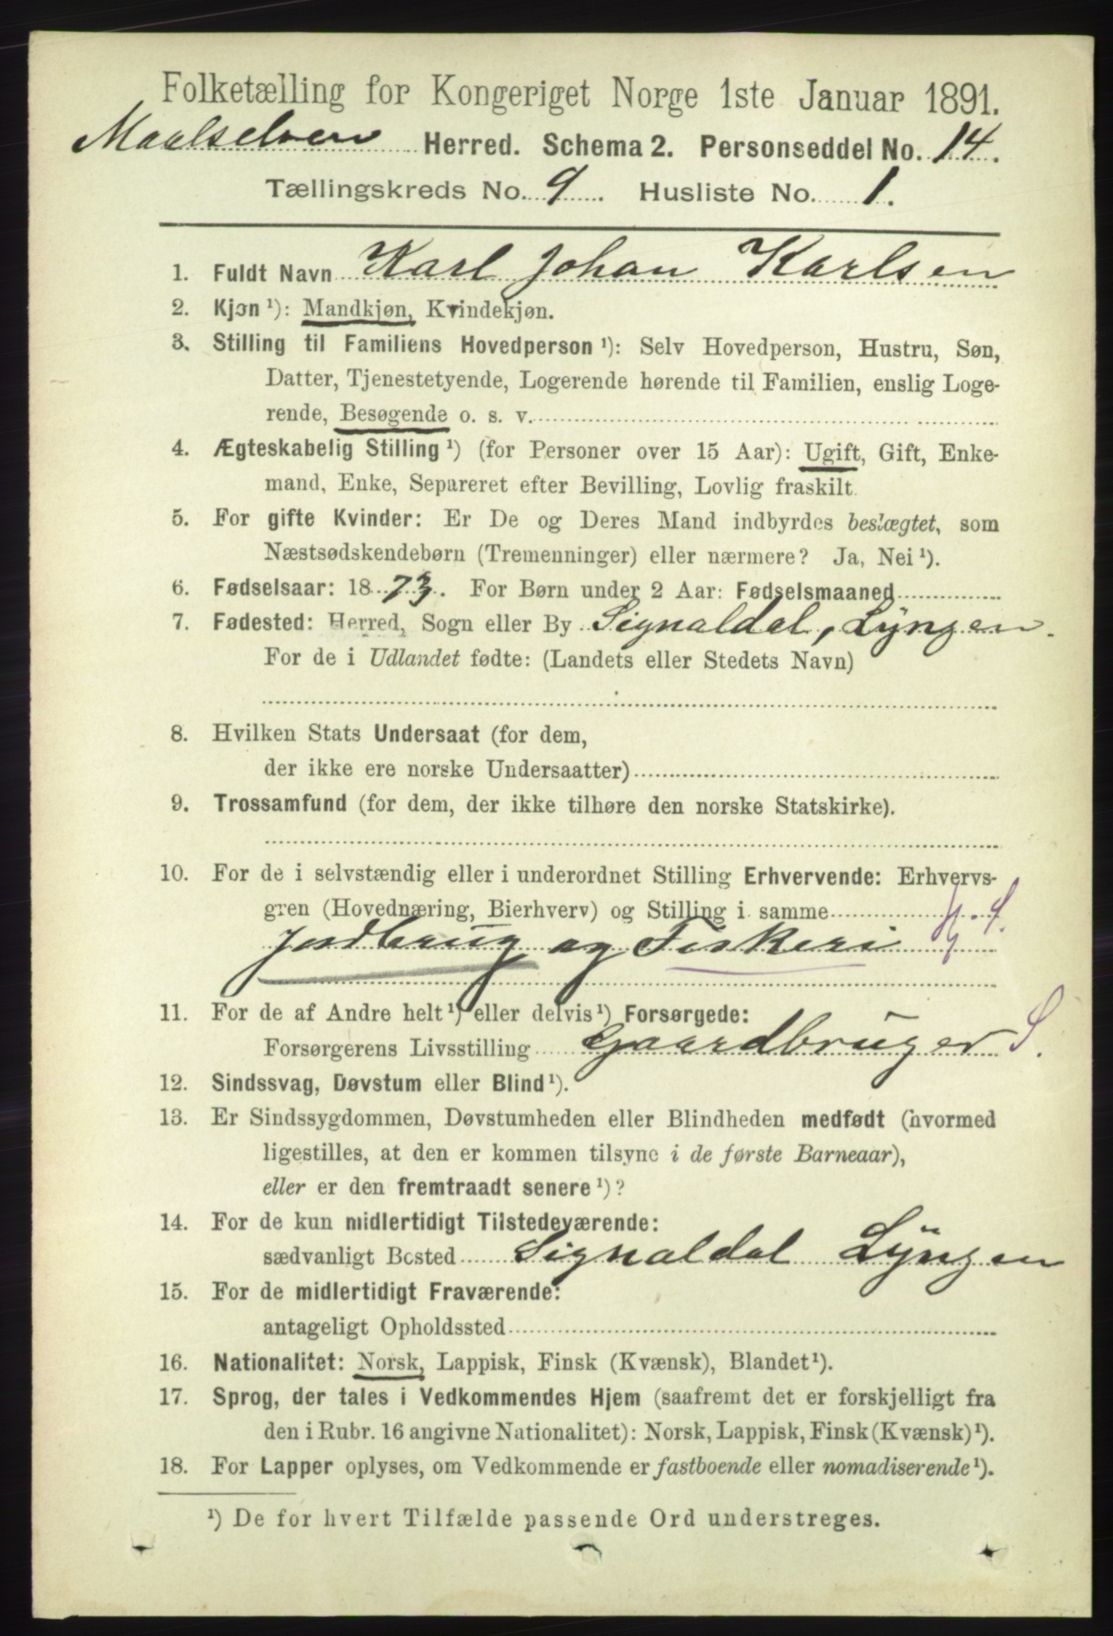 Folketælling for Kongeriget Norge 1ste Januar 1891.
Maalselven Herred. Schema 2. Personseddel No. 14.
Tællingskreds No. 9. Husliste No. 1.
1. Fuldt Navn Karl Johan Karlsen
2. Kjøn ¹): Mandkjøn, Kvindekjøn.
3. Stilling til Familiens Hovedperson ¹): Selv Hovedperson, Hustru, Søn,
Datter, Tjenestetyende, Logerende hørende til Familien, enslig Loge-
rende, Besøgende o. s. v.
4. Ægteskabelig Stilling ¹) (for Personer over 15 Aar): Ugift, Gift, Enke-
mand, Enke, Separeret efter Bevilling, Lovlig fraskilt
5. For gifte Kvinder: Er De og Deres Mand indbyrdes beslægtet, som
Næstsødskendebørn (Tremenninger) eller nærmere? Ja, Nei ¹).
6. Fødselsaar: 1873. For Børn under 2 Aar: Fødselsmaaned
7. Fødested: Herred, Sogn eller By Signaldal, Lyngen.
For de i Udlandet fødte: (Landets eller Stedets Navn)
8. Hvilken Stats Undersaat (for dem,
der ikke ere norske Undersaatter)
9. Trossamfund (for dem, der ikke tilhøre den norske Statskirke).
10. For de i selvstændig eller i underordnet Stilling Erhvervende: Erhvervs-
gren (Hovednæring, Bierhverv) og Stilling i samme
Jordbrug og Fiskeri
11. For de af Andre helt ¹) eller delvis ¹) Forsørgede:
Forsørgerens Livsstilling Gaardbruger S.
12. Sindssvag, Døvstum eller Blind ¹).
13. Er Sindssygdommen, Døvstumheden eller Blindheden medfødt (hvormed
ligestilles, at den er kommen tilsyne i de første Barneaar),
eller er den fremtraadt senere ¹)?
14. For de kun midlertidigt Tilstedeværende:
sædvanligt Bosted Signaldal Lyngen
15. For de midlertidigt Fraværende:
antageligt Opholdssted
16. Nationalitet: Norsk, Lappisk, Finsk (Kvænsk), Blandet ¹).
17. Sprog, der tales i Vedkommendes Hjem (saafremt det er forskjelligt fra
den i Rubr. 16 angivne Nationalitet): Norsk, Lappisk, Finsk (Kvænsk) ¹).
18. For Lapper oplyses, om Vedkommende er fastboende eller nomadiserende ¹).
¹) De for hvert Tilfælde passende Ord understreges.